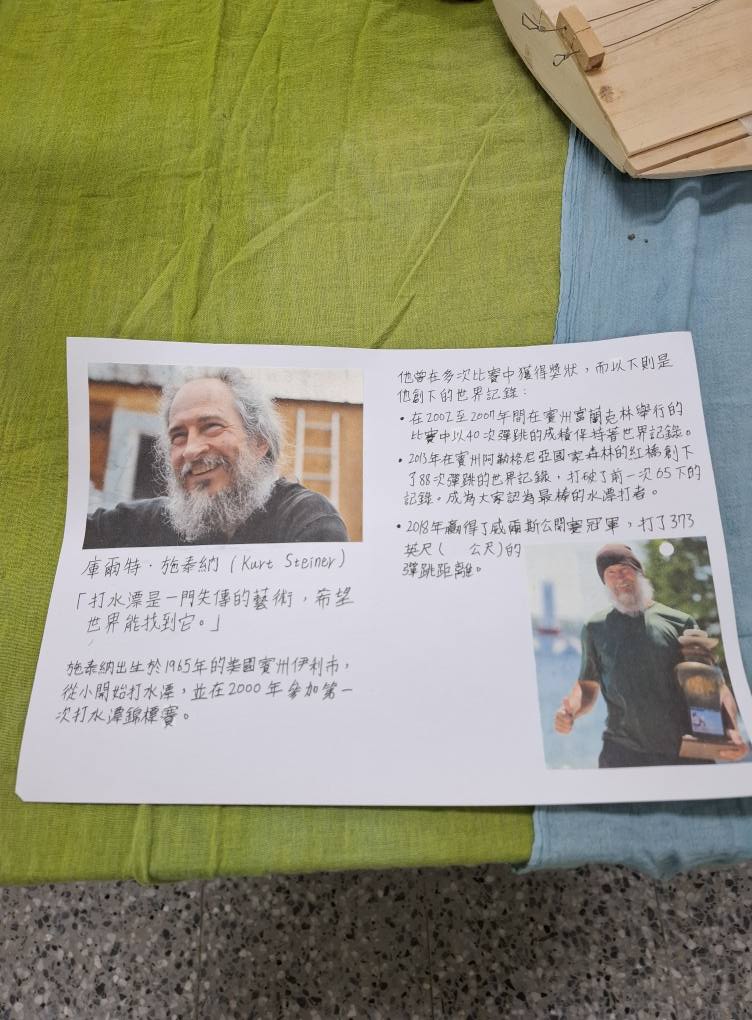 庫爾特·施泰納 (Kurt Steiner)
「打水漂是一門失傳的藝術，希望
世界能找到它。」
施泰納出生於1965年的美國賓州伊利市，
從小開始打水漂，並在2000年參加第一
次打水漂錦標賽。
他曾在多次比賽中獲得獎狀，而以下則是
他創下的世界記錄：
•在2002至2007年間在賓州富蘭克林舉行的
比賽中以40次彈跳的成積保持著世界記錄。
•2013年在賓州阿勒格尼亞國家森林的紅橋創下
了88次彈跳的世界記錄，打破了前一次65下的
記錄。成為大家認為最棒的水漂打者。
•2018年贏得了威爾斯公開賽冠軍，打了373
英尺( 公尺)的
彈跳距離。